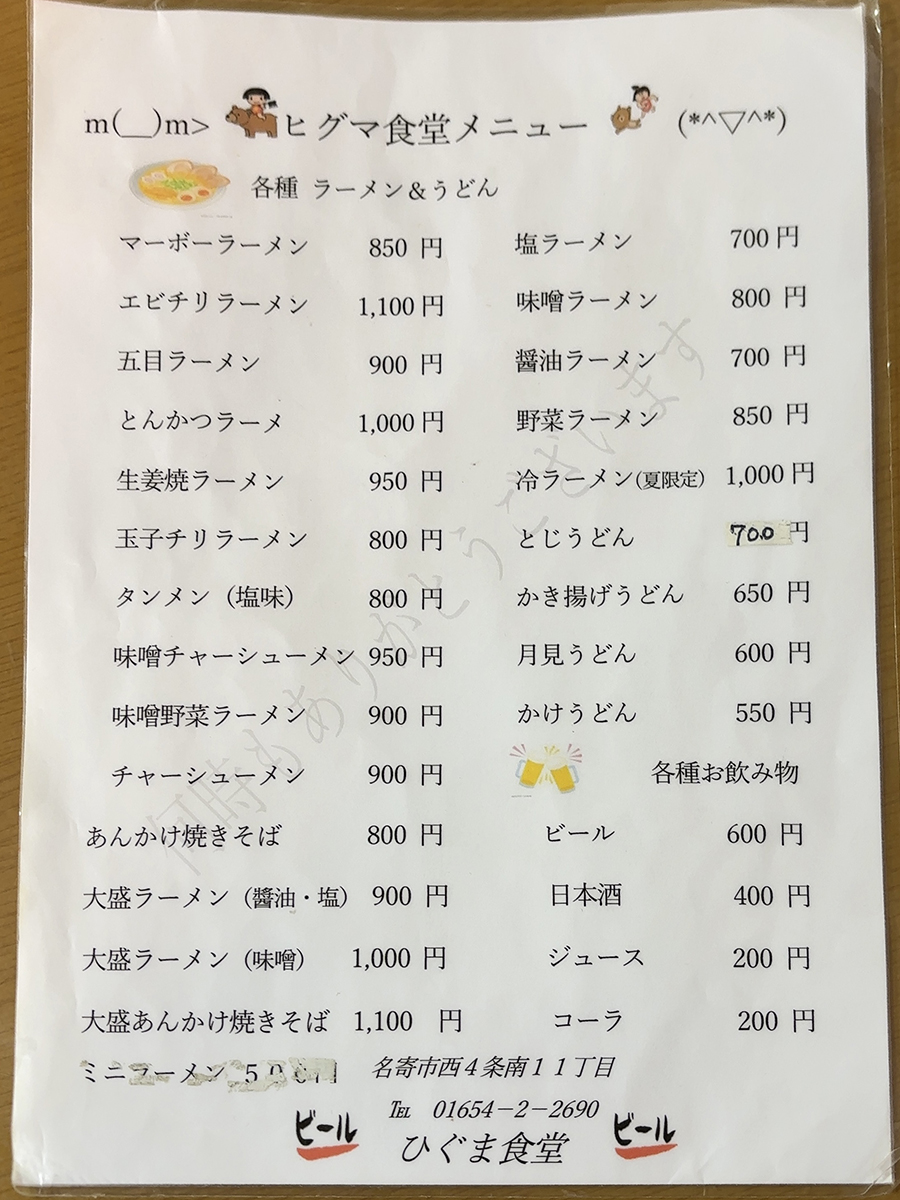 m(__)m> ヒグマ食堂メニュー (*^▽^*)
各種 ラーメン&うどん
マーボーラーメン 850 円
エビチリラーメン 1,100 円
五目ラーメン 900 円
とんかつラーメ 1,000 円
生姜焼ラーメン 950 円
玉子チリラーメン 800 円
タンメン（塩味） 800 円
味噌チャーシューメン 950 円
味噌野菜ラーメン 900 円
チャーシューメン 900 円
あんかけ焼きそば 800 円
大盛ラーメン（醬油・塩） 900 円
大盛ラーメン（味噌） 1,000 円
大盛あんかけ焼きそば 1,100 円
ミニラーメン
塩ラーメン 700 円
味噌ラーメン 800 円
醬油ラーメン 700 円
野菜ラーメン 850 円
冷ラーメン(夏限定) 1,000 円
とじうどん 700 円
かき揚げうどん 650 円
月見うどん 600 円
かけうどん 550 円
各種お飲み物
ビール 600 円
日本酒 400 円
ジュース 200 円
コーラ 200 円
何時もありがとうございます
名寄市西４条南１１丁目
℡ 01654－2－2690
ビール ひぐま食堂 ビール